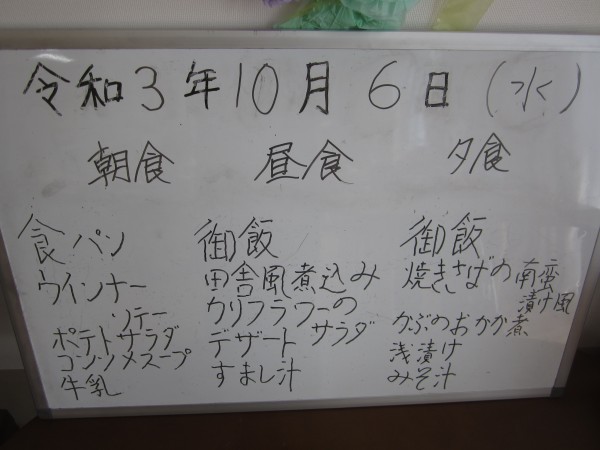 令和3年10月6日(水)
朝食 昼食 夕食
食パン
ウインナー
ソテー
ポテトサラダ
コンソメスープ
牛乳
御飯
田舎風煮込み
カリフラワーの
サラダ
デザート
すまし汁
御飯
焼きさばの南蛮
漬け風
かぶのおかか煮
浅漬け
みそ汁